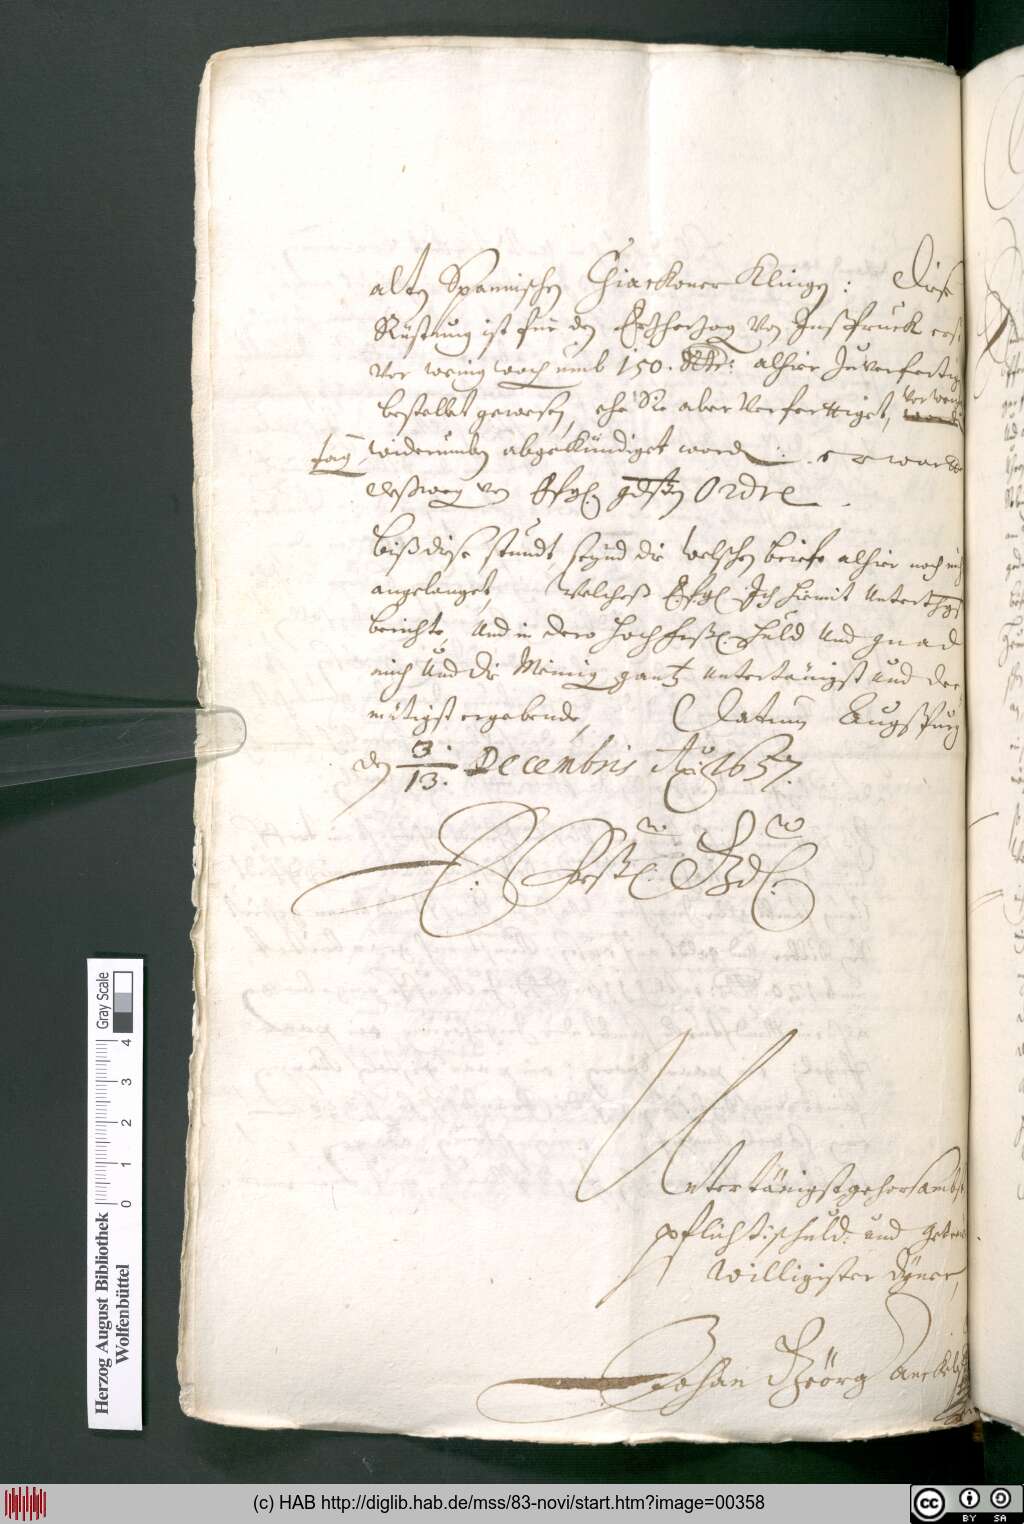 alten Spannischen Chiackoner Klingen: Diese
Rüstung ist für den Ertzherzog von Insspruck erst
vor wenig woch umb 150. alhier Zuverfertig
bestellet gewesen, ehe Sie aber Verferttiget, vor wenig
tag, widerumben abgekündiget word: erwarte
desswegen von Efgl. gdsten Ordre.
Biss dise stundt, seynd die welschen brieffe alhier noch nich
angelanget, Welchess Efgl. Ich hiemit Unterthgst
berichte, Und in dero Hochfürstl. huld Und gnad
mich Und die Meinig gantz Untertänigst und dee
mütigst ergebende, Datum Augspurg
den 3./13. Decembris Ao 1657.
E. Frstl. Gd.
Untertänigst gehorsambst
pflichtschuld: und getreu
willigister Dyner,
Johan Geörg Anckel
Herzog August Bibliothek
Wolfenbüttel
0 1 2 3 4
Gray Scale
(c) HAB http://diglib.hab.de/mss/83-novi/start.htm?image=00358
cc BY SA